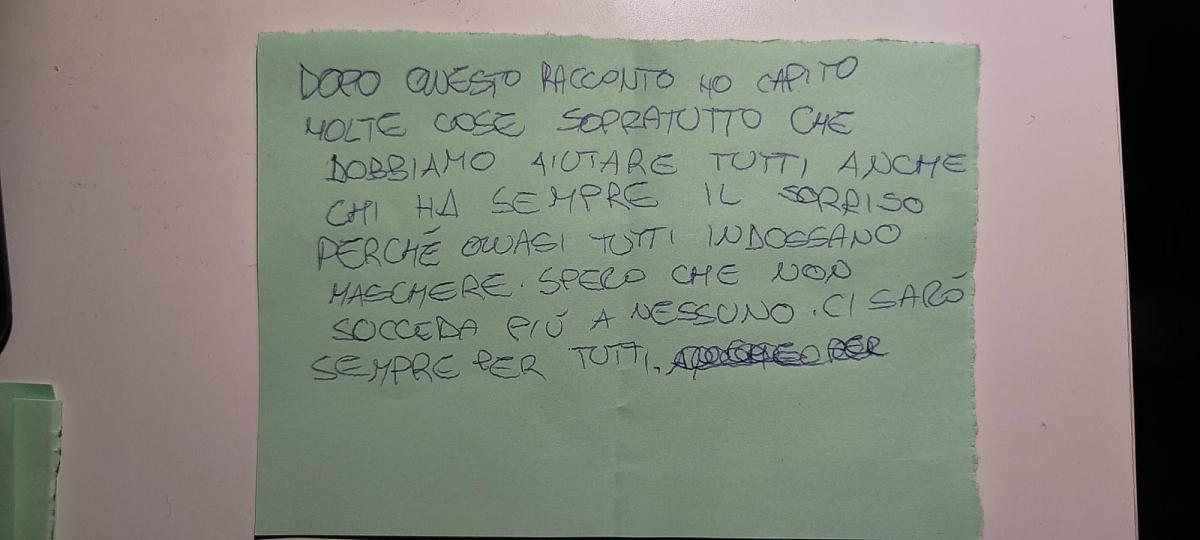 DOPO QUESTO RACCONTO HO CAPITO
MOLTE COSE SOPRATUTTO CHE
DOBBIAMO AIUTARE TUTTI ANCHE
CHI HA SEMPRE IL SORRISO
PERCHÉ QUASI TUTTI INDOSSANO
MASCHERE. SPERO CHE NON
SOCCEDA PIÚ A NESSUNO. CI SARÓ
SEMPRE PER TUTTI. PER